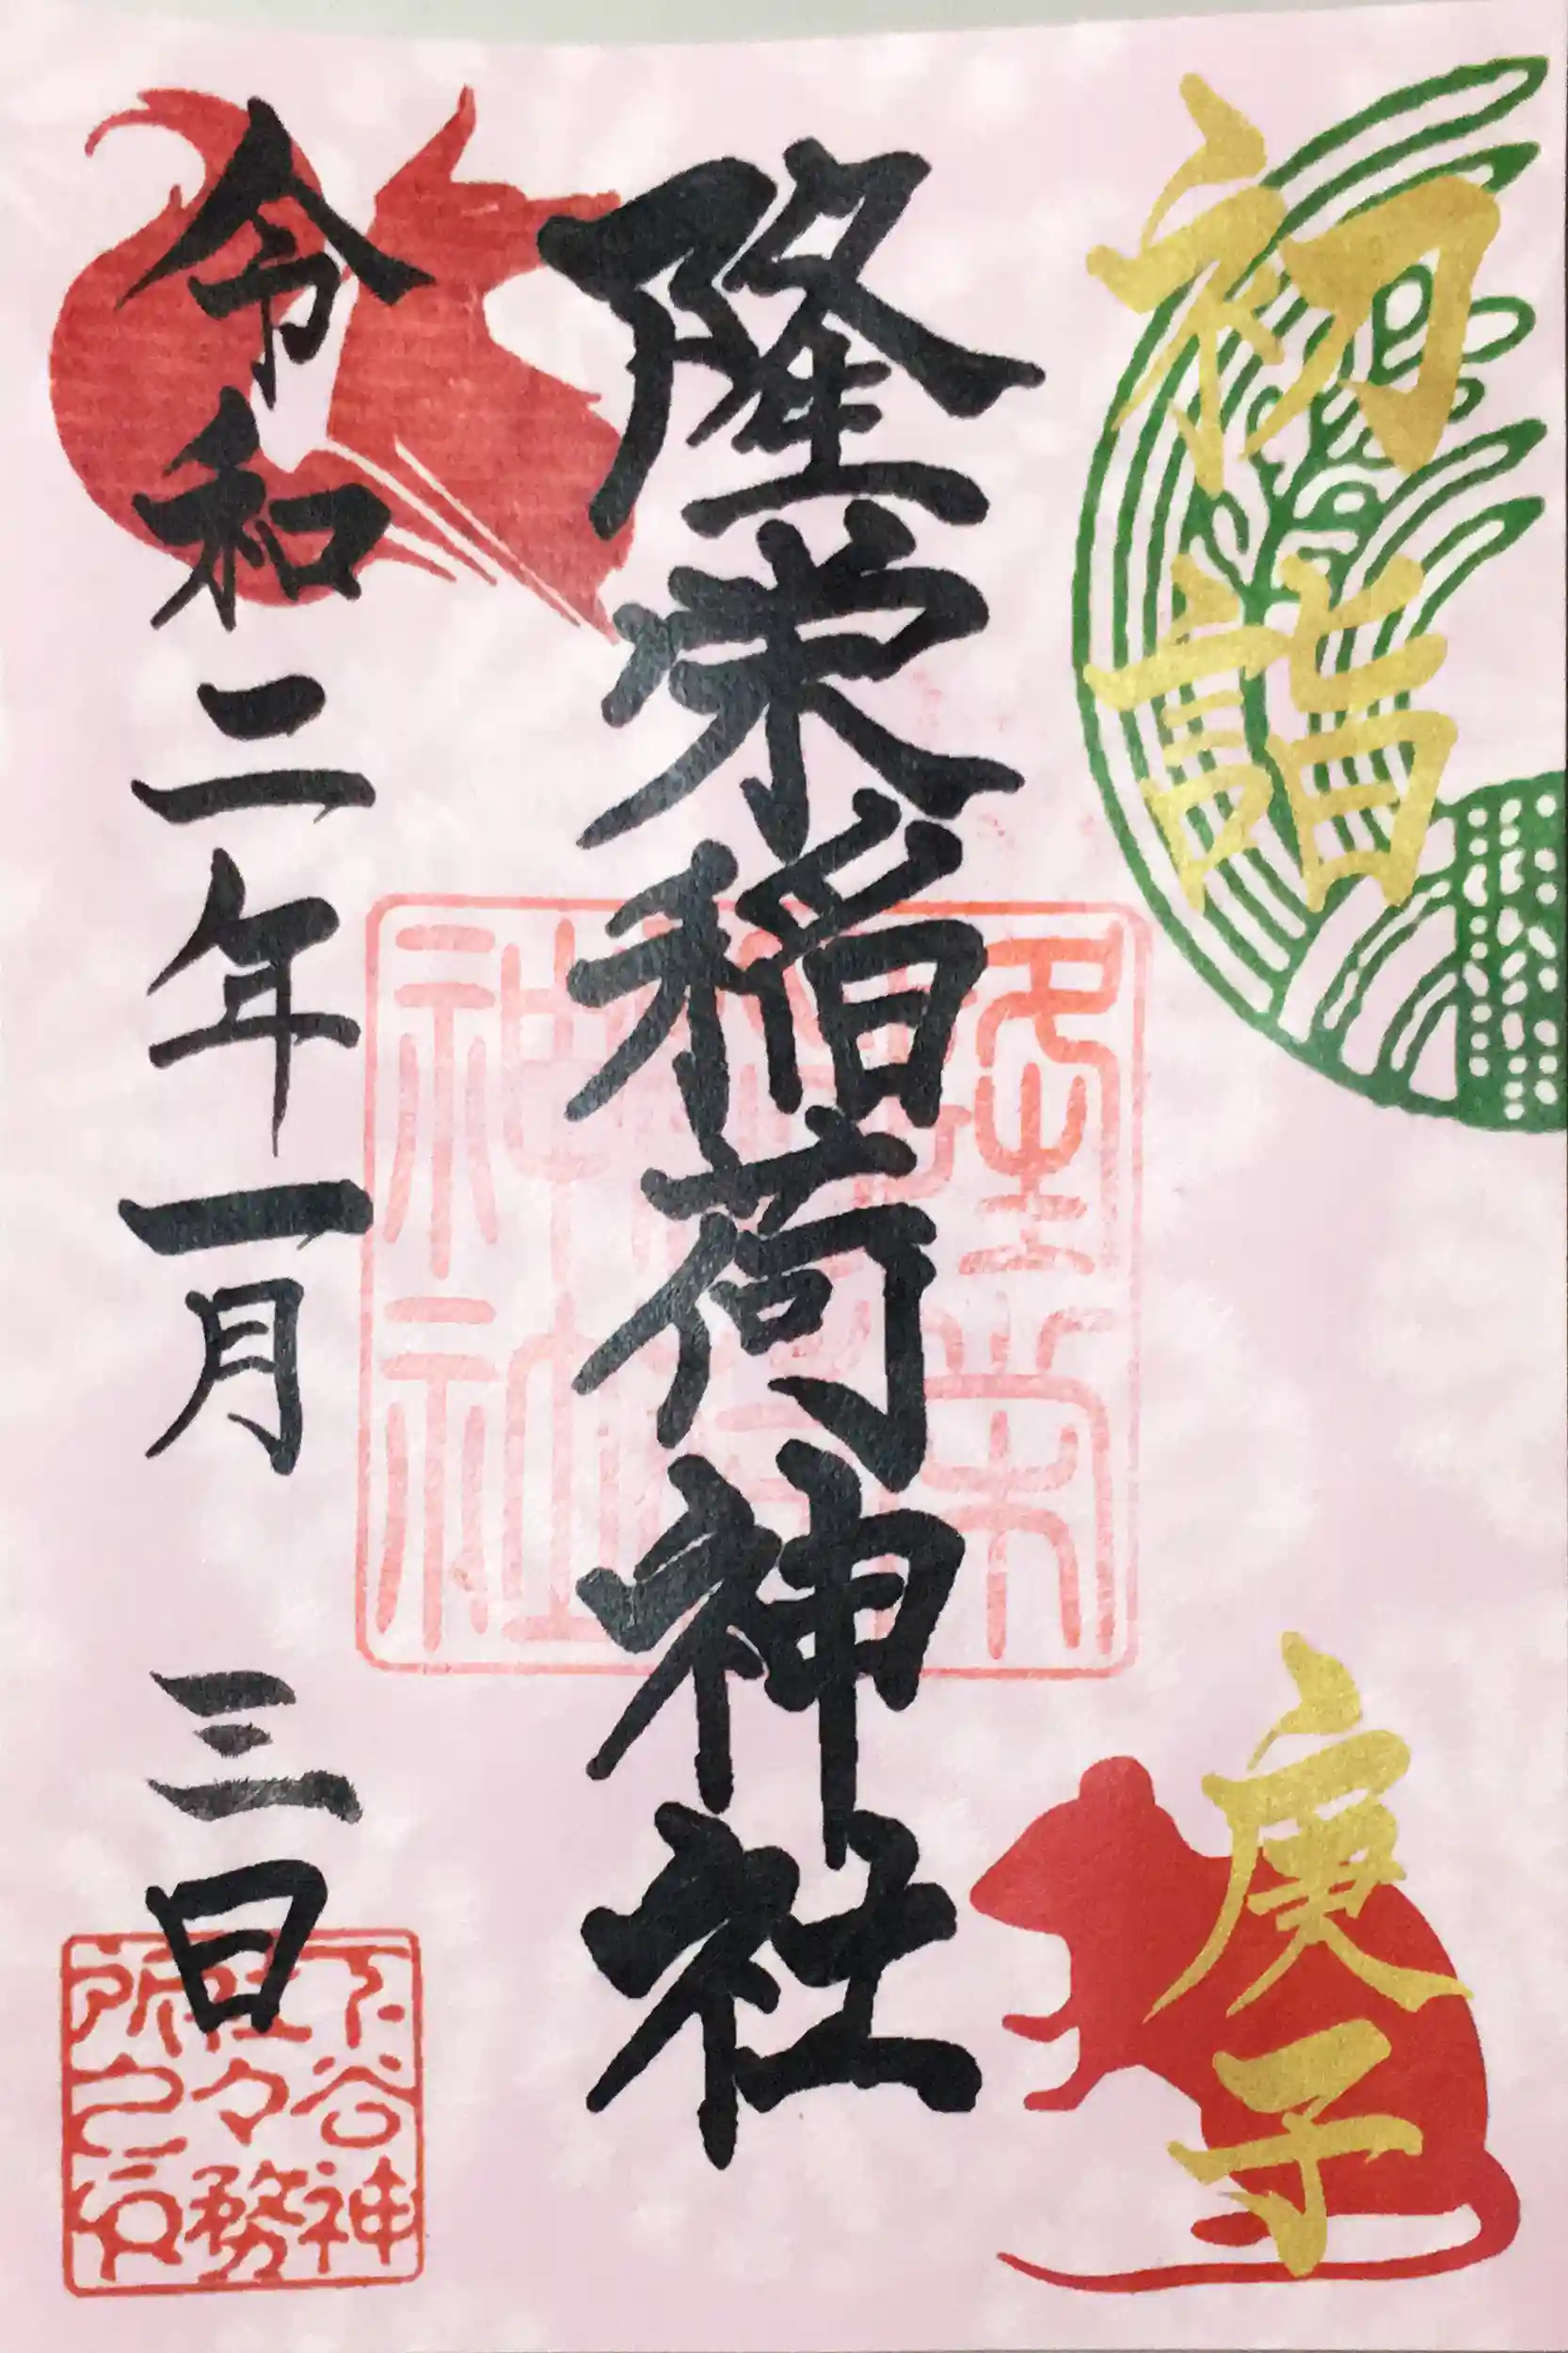 初詣
庚子
隆栄稲荷神社
隆栄
神社
令和二年一月三日
下谷神
社々務
所之印